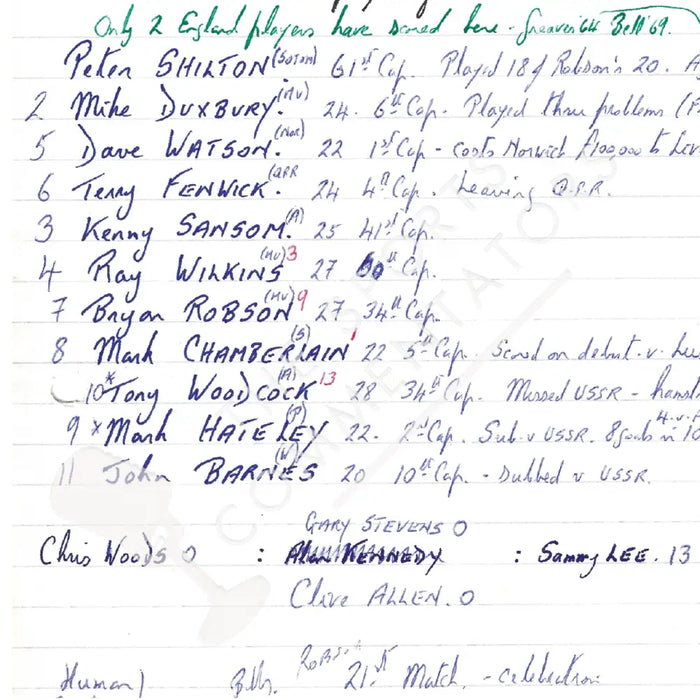 Only 2 England players have scored here - Greaves '64 Bell '69.
Peter SHILTON (SOTON) 61st Cap. Played 18 of Robson's 20. A
2 Mike DUXBURY. (MU) 24. 6th Cap. Played three problems (F
5 Dave WATSON. (Nor) 22 1st Cap - costs Norwich £100,000 to Liv
6 Terry FENWICK. (QPR 24 4th Cap. Leaving Q.P.R.
3 Kenny SANSOM. (A) 25 41st Cap.
4 Ray WILKINS (MU) 3 27 60th Cap.
7 Bryan ROBSON (MU) 9 27 34th Cap.
8 Mark CHAMBERLAIN (S) 1 22 5th Cap. Scored on debut. v. Lux
10* Tony WOODCOCK (A) 13 28 34th Cap. Missed USSR - hamst
9 * Mark HATELEY (P) 22. 2nd Cap. Sub. v USSR. 8 goals in 10
4. v. F
11 John BARNES (W) 20 10th Cap. - Dubbed v USSR.
GARY STEVENS 0
Chris WOODS 0 : Alan KENNEDY : Sammy LEE. 13
Clive ALLEN. 0
ROBSON
21st Match - celebration
THE SPORTS COMMENTATORS